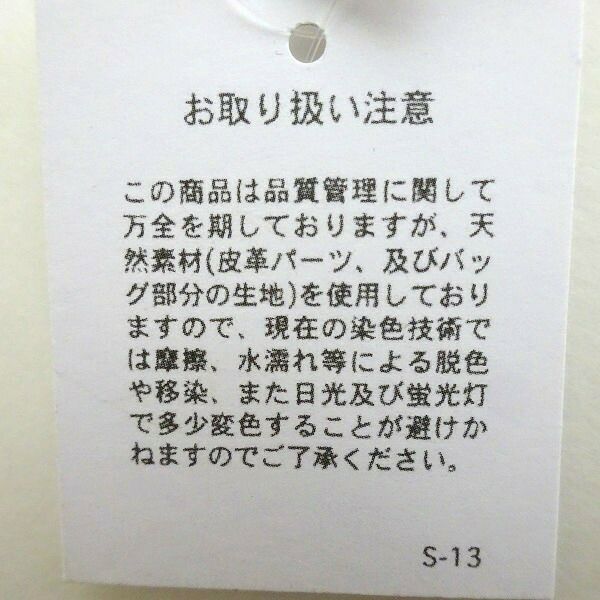 お取り扱い注意
この商品は品質管理に関して
万全を期しておりますが、天
然素材(皮革パーツ、及びバッ
グ部分の生地)を使用しており
ますので、現在の染色技術で
は摩擦、水濡れ等による脱色
や移染、また日光及び蛍光灯
で多少変色することが避けか
ねますのでご了承ください。
S-13